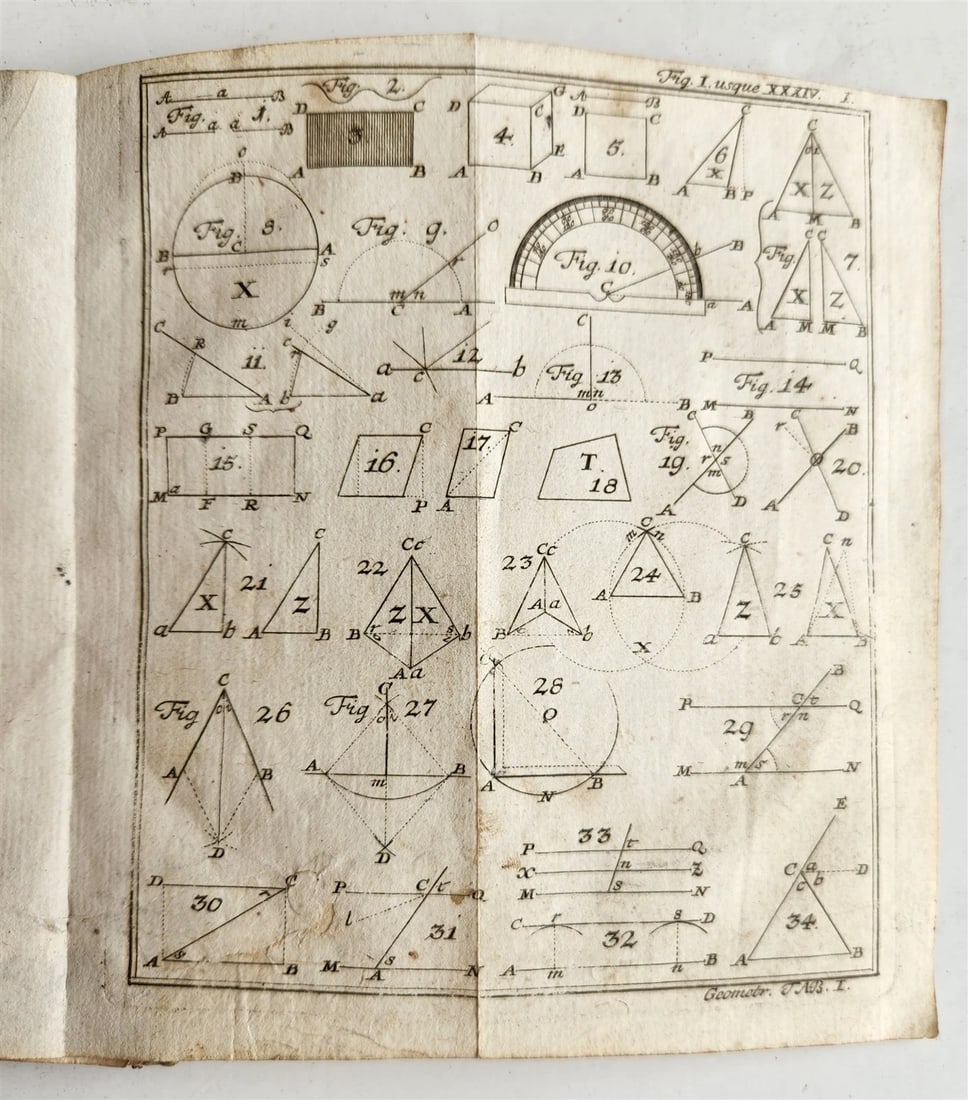 Fig. I. usque XXXIV. I.
A a B
Fig. 1.
A a a B
Fig. 2.
D C
3.
A B
D G
C
4.
A B
A B
D C
5.
A B
C
6
X
A B P
C
X Z
A M B
Fig. 7.
C C
X Z
A M M B
D
Fig. 8.
C
B A
s
X
m
Fig. 9.
O
r
m n
B C A
Fig. 10.
C
b B
a A
C
R
11.
B A
i g
c
b a
12
a b
c
C
Fig 13
m n
A o B
P Q
Fig. 14
M N
P G S Q
15.
M a F R N
C
16.
P
C
17.
A
T.
18
Fig.
19.
C B
n
r s
m
A D
C B
r
20.
A D
C
X
a b
21
C
Z
A B
22
Cc
Z X
B r s b
Aa
23
Cc
A a
B b
C
m n
24
A B
X
C
Z
a b
25
C n
X
A B
Fig 26
C
A B
D
Fig 27
C
A B
m
D
28
C
O
A B
N
B
C t
P Q
29
r n
m s
M A N
D C
30
A B
P C t Q
l
31
s
M A N
33
P t Q
X n Z
M s N
C r s D
32
A m n B
E
C a D
b
c
34.
A B
Geometr. TAB. I.